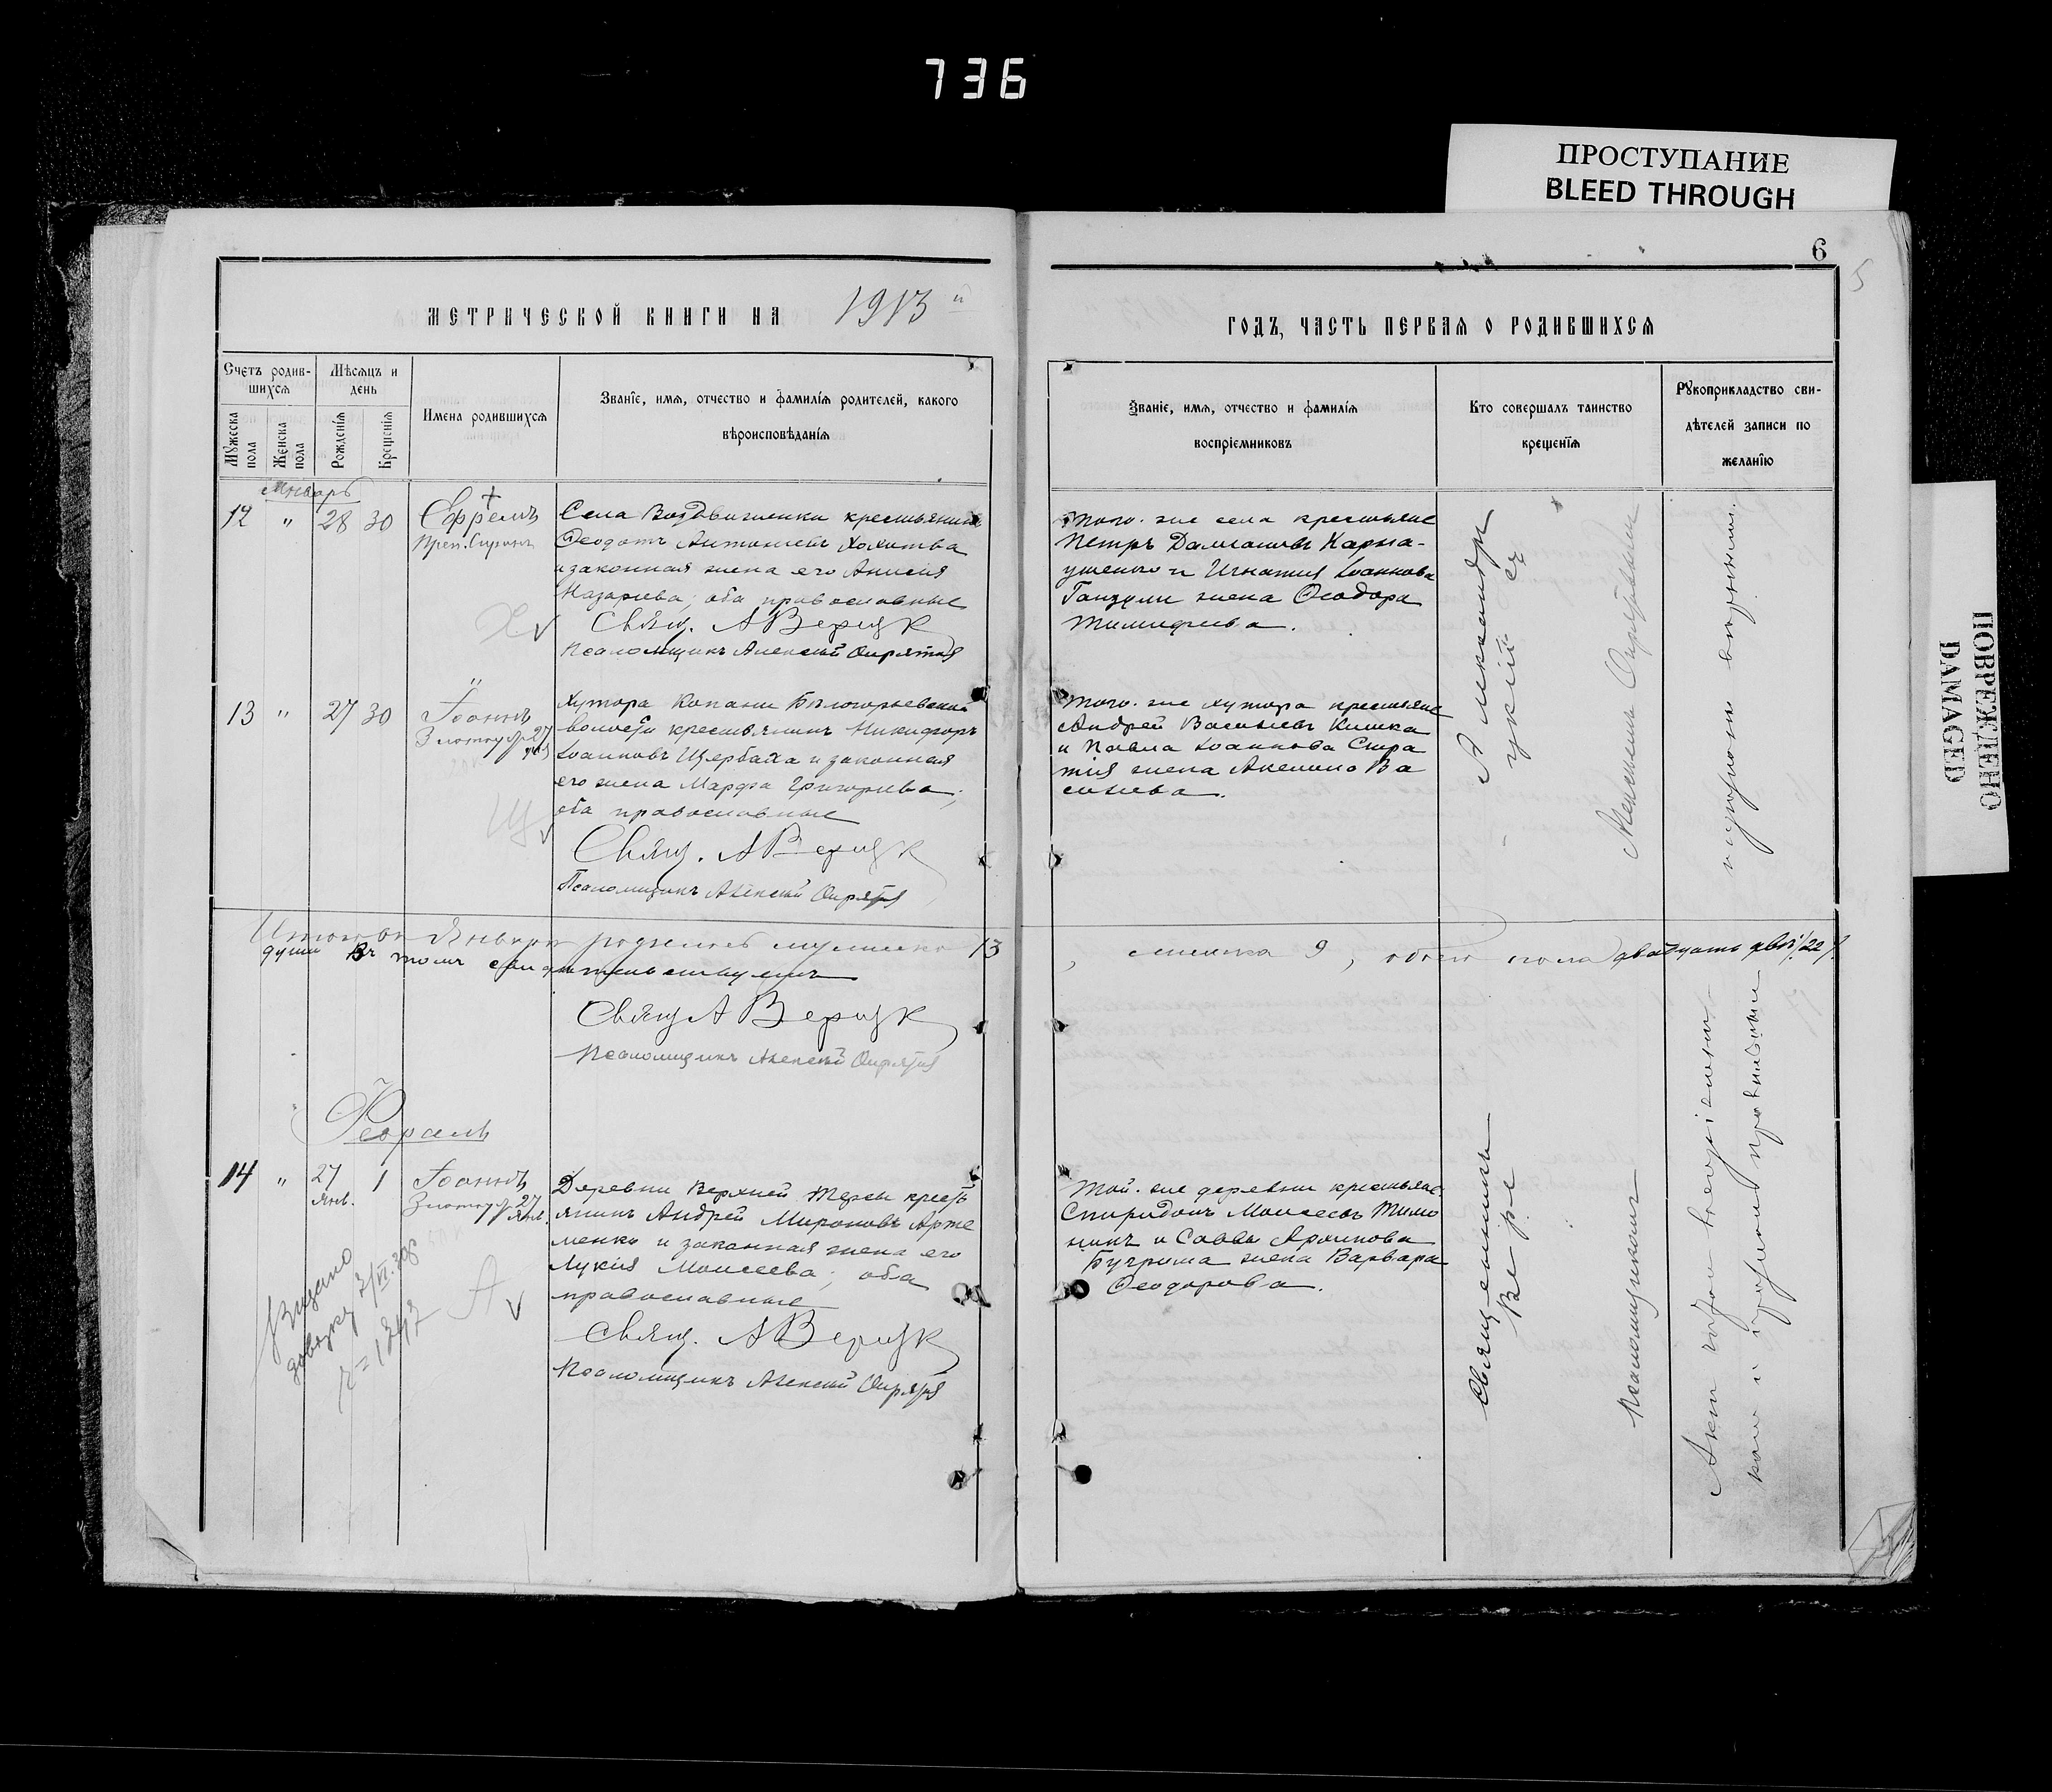 736
ПРОСТУПАНИЕ
BLEED THROUGH
6
5
МЕТРИЧЕСКОЙ КНИГИ НА 1913 й
ГОДЪ, ЧАСТЬ ПЕРВАЯ О РОДИВШИХСЯ
Счетъ родив-
шихся
Мѣсяцъ и
день
Мужеска
пола
Женска
пола
Рожденія
Крещенія
Имена родившихся
Званіе, имя, отчество и фамилія родителей, какого
вѣроисповѣданія
Званіе, имя, отчество и фамилія
воспріемниковъ
Кто совершалъ таинство
крещенія
Рукоприкладство сви-
дѣтелей записи по
желанію
Январь
12 " 28 30 Ефремъ
Преп. Сиринъ
Села Воздвиженки крестьянинъ
Ѳеодотъ Антоніевъ
и законная жена его Анисія
Назаріева, оба православные
Х
Свящ. А Верецк
Псаломщикъ Алексѣй
Того-же села крестьяне
Петръ Даміановъ Карна-
ушенко и Игнатія Іоаннова
Ганзули жена Ѳеодора
Тимофеева.
13 " 27 30 Іоаннъ
Златоуст 27
янв
Хутора Копани Бѣлогорьевской
волости крестьянинъ Никифоръ
Іоанновъ Щербаха и законная
его жена Марфа Григорьева;
оба православные
Щ
Свящ. А Верецк
Псаломщикъ Алексѣй
Того-же хутора крестьяне
Андрей Васильевъ Кишка
и Павла Іоаннова Сира
тія жена Акелина Ва
сильева.
Александръ
Итого въ Январѣ родилось мужеска 13, женска 9, обоего пола двадцать двѣ /22/
души. Въ томъ
Свящ А Верецк
Псаломщикъ Алексѣй
Февраль
14 " 27 1 Іоаннъ
Янв.
Златоуст 27
Янв.
Деревни Верхней Терсы кресть
янинъ Андрей Мироновъ Арте
менко и законная жена его
Лукія Моисеева; оба
православные
А
Видано
довідку
Свящ. А Верецк
Псаломщикъ Алексѣй
Той-же деревни крестьяне
Спиридонъ Моисеевъ Тимо
и Саввы Архипова
Бугрима жена Варвара
Ѳеодорова.
Священникъ
Вере
Псаломщикомъ
ПОВРЕЖДЕНО
DAMAGED